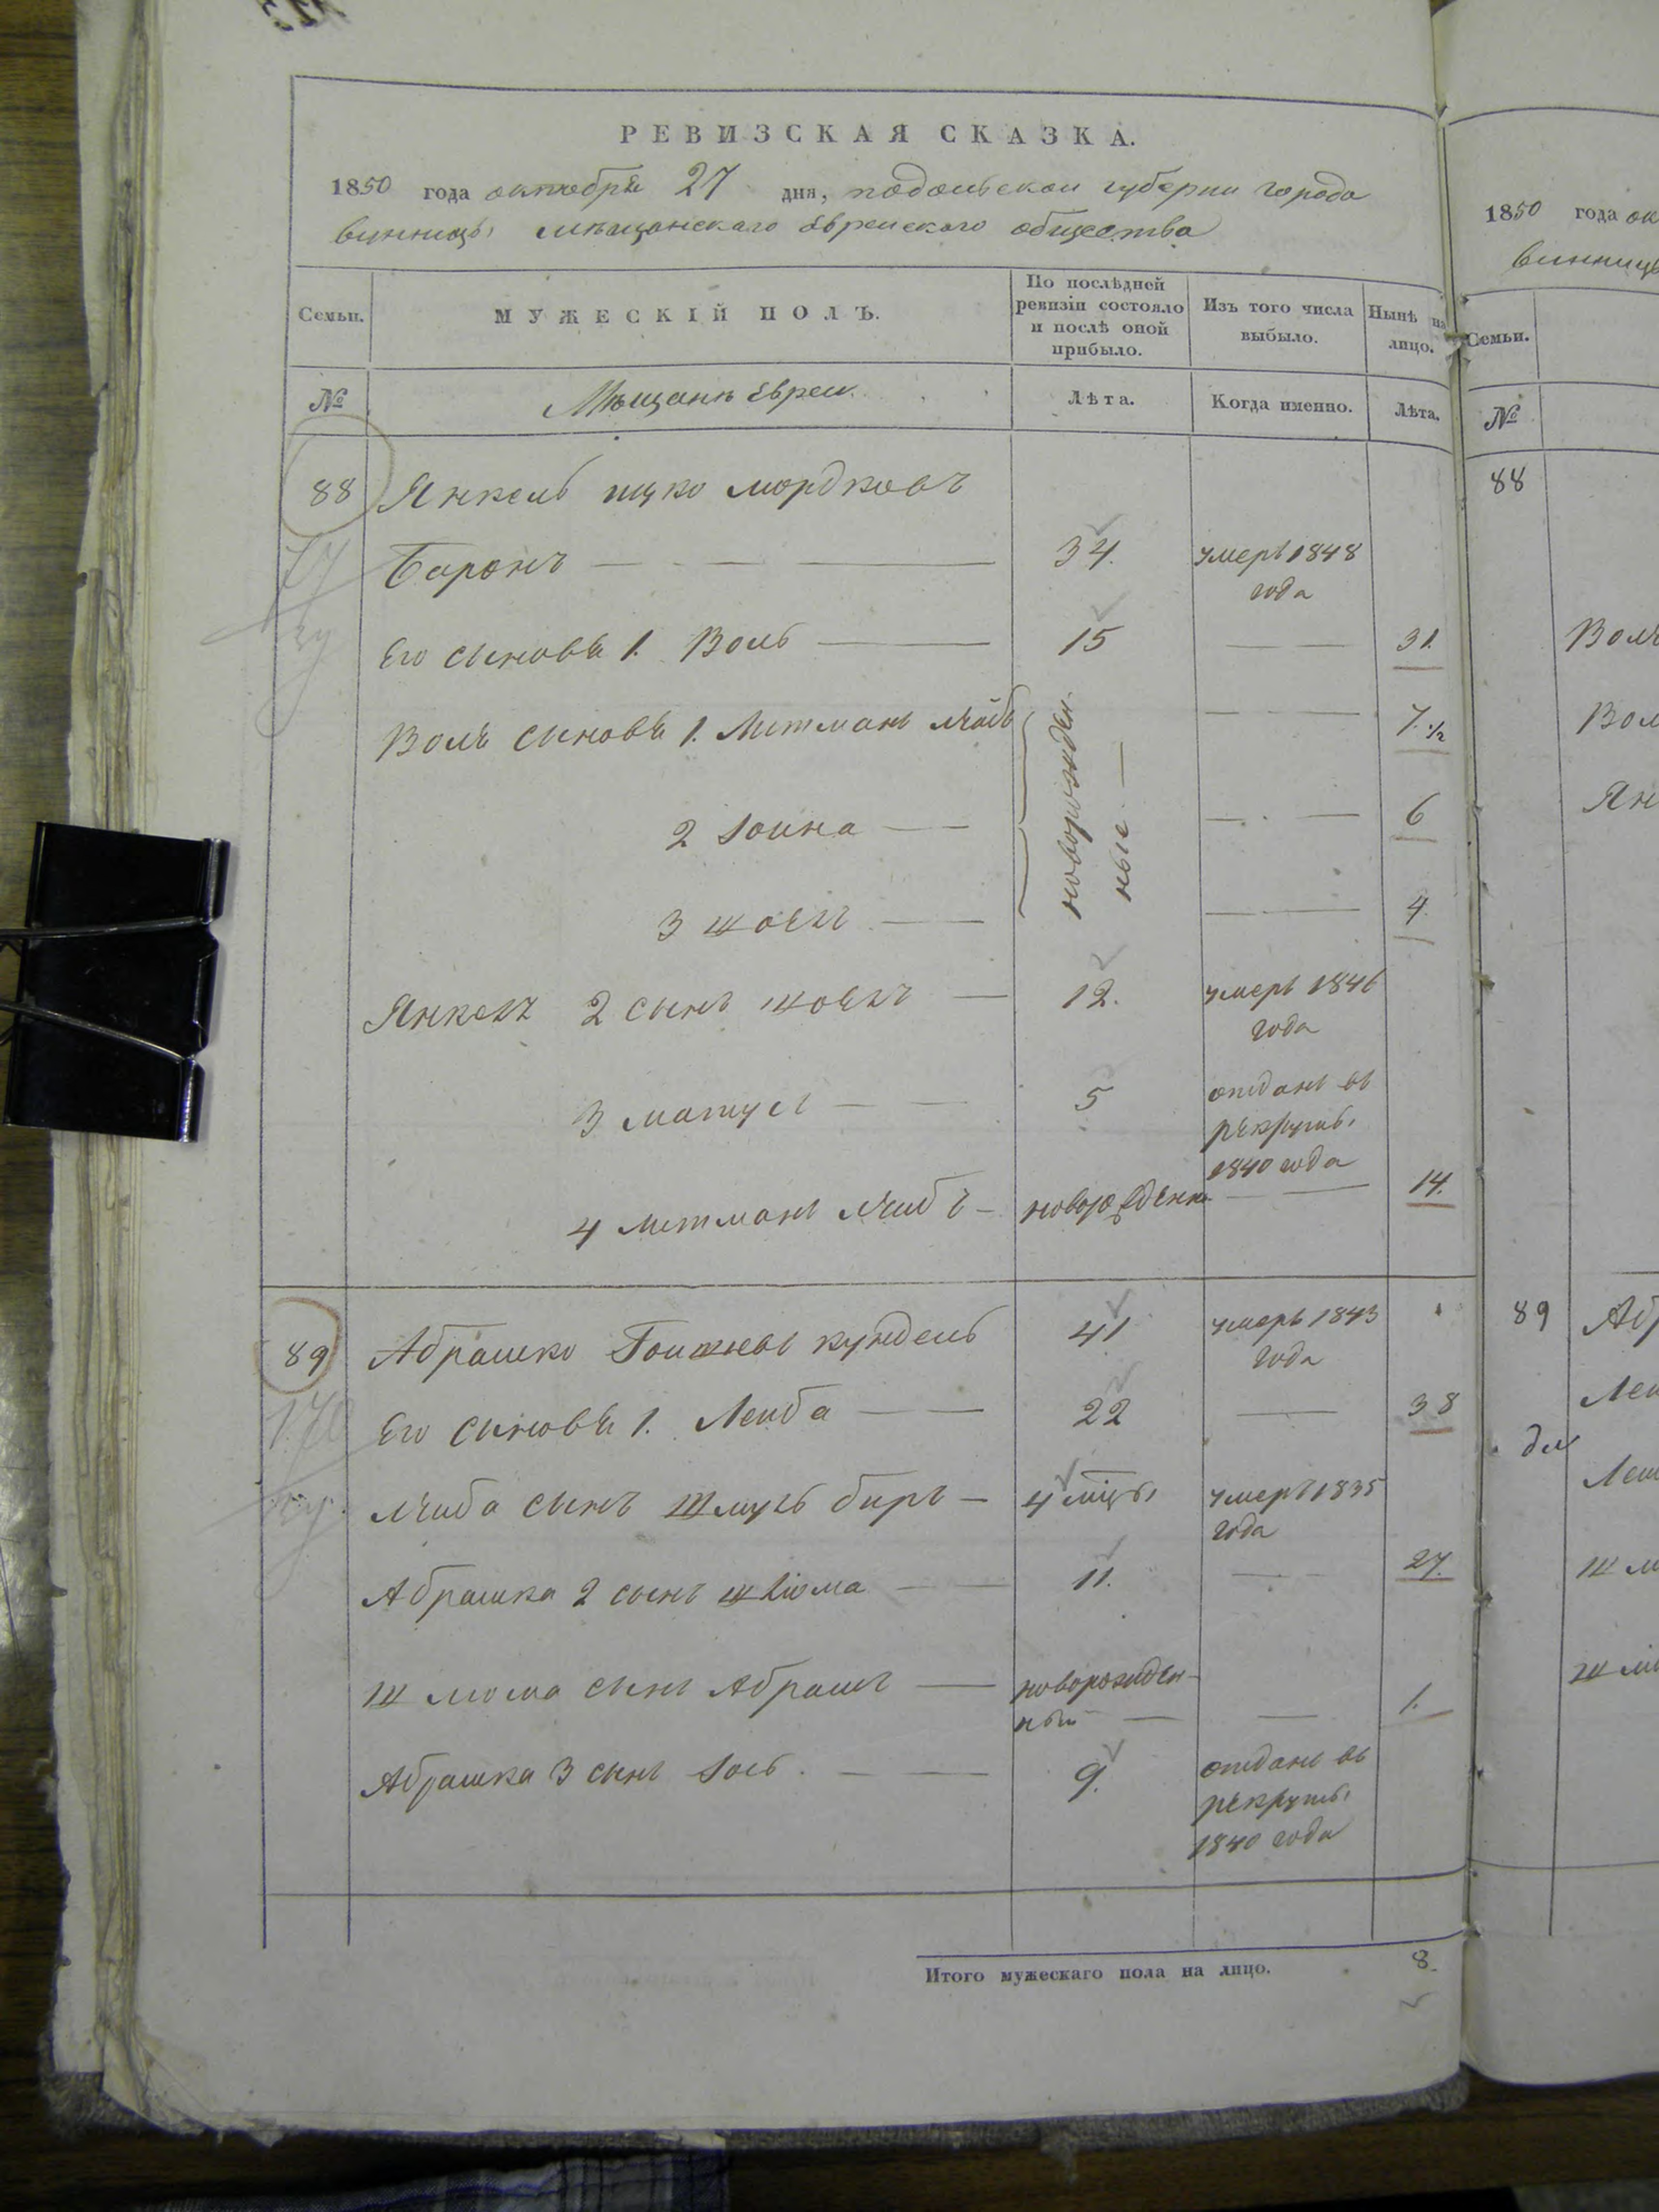 РЕВИЗСКАЯ СКАЗКА.
1850 года октобря 27 дня, подольской губерни города
винницы мѣщанскаго Еврейскаго общества
Семьи.
МУЖЕСКІЙ ПОЛЪ.
По послѣдней
ревизіи состояло
и послѣ оной
прибыло.
Изъ того числа
выбыло.
Нынѣ на
лицо.
№
Мѣщане Евреи
Лѣта.
Когда именно.
Лѣта.
88 Янкель ицко мордковъ
Баронъ — 34. умеръ 1848
года
Его сыновья 1. Воль — 15 — — 31.
Воля сыновья 1. Лейб — — 7.½
новорожден-
ные —
2 Іоина — — . — 6
3 шоелъ — — — 4
Янкель 2 сынъ шоелъ — 12. умеръ 1846
года
3 матусъ — — 5 отданъ въ
рекруты
1840 года
4 — — — 14.
89 Абрашко кундель 41 умеръ 1843
года
Его сыновья 1. Лейба — — 22 — 38
Лейба сынъ Шмуль беръ — 4 мцы умеръ 1835
года
Абрашка 2 сынъ шліома — — 11. — - 27.
Шліома сынъ Абрамъ — новорожден-
ный — — 1.
Абрашка 3 сынъ Іось. — — 9. отданъ въ
рекруты
1840 года
Итого мужескаго пола на лицо. 8.
1850 года ок
винницы
Семьи.
№
88
Воля
Вол
Ян
89 Аб
Леи
Леи
Шл
Шл